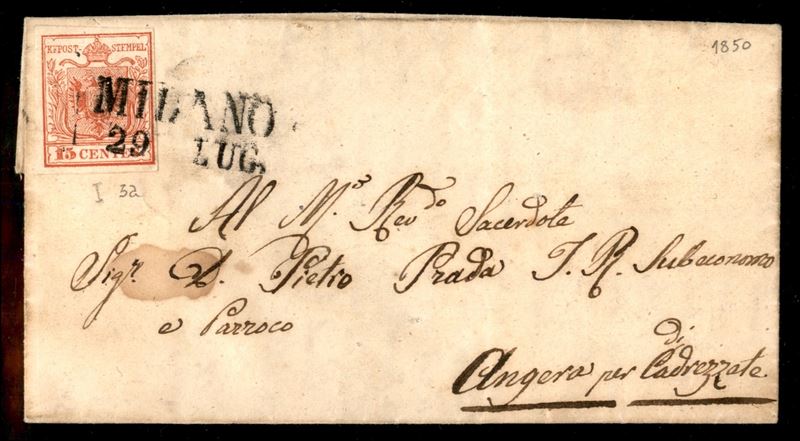 1850
KKPOST-STEMPEL
15 CENTES
MILANO
29 LUG.
I 32
Al M.º Rev.do Sacerdote
Sigr. D. Pietro Prada I. R. Subeconomo
e Parroco
di
Angera per Cadrezzate